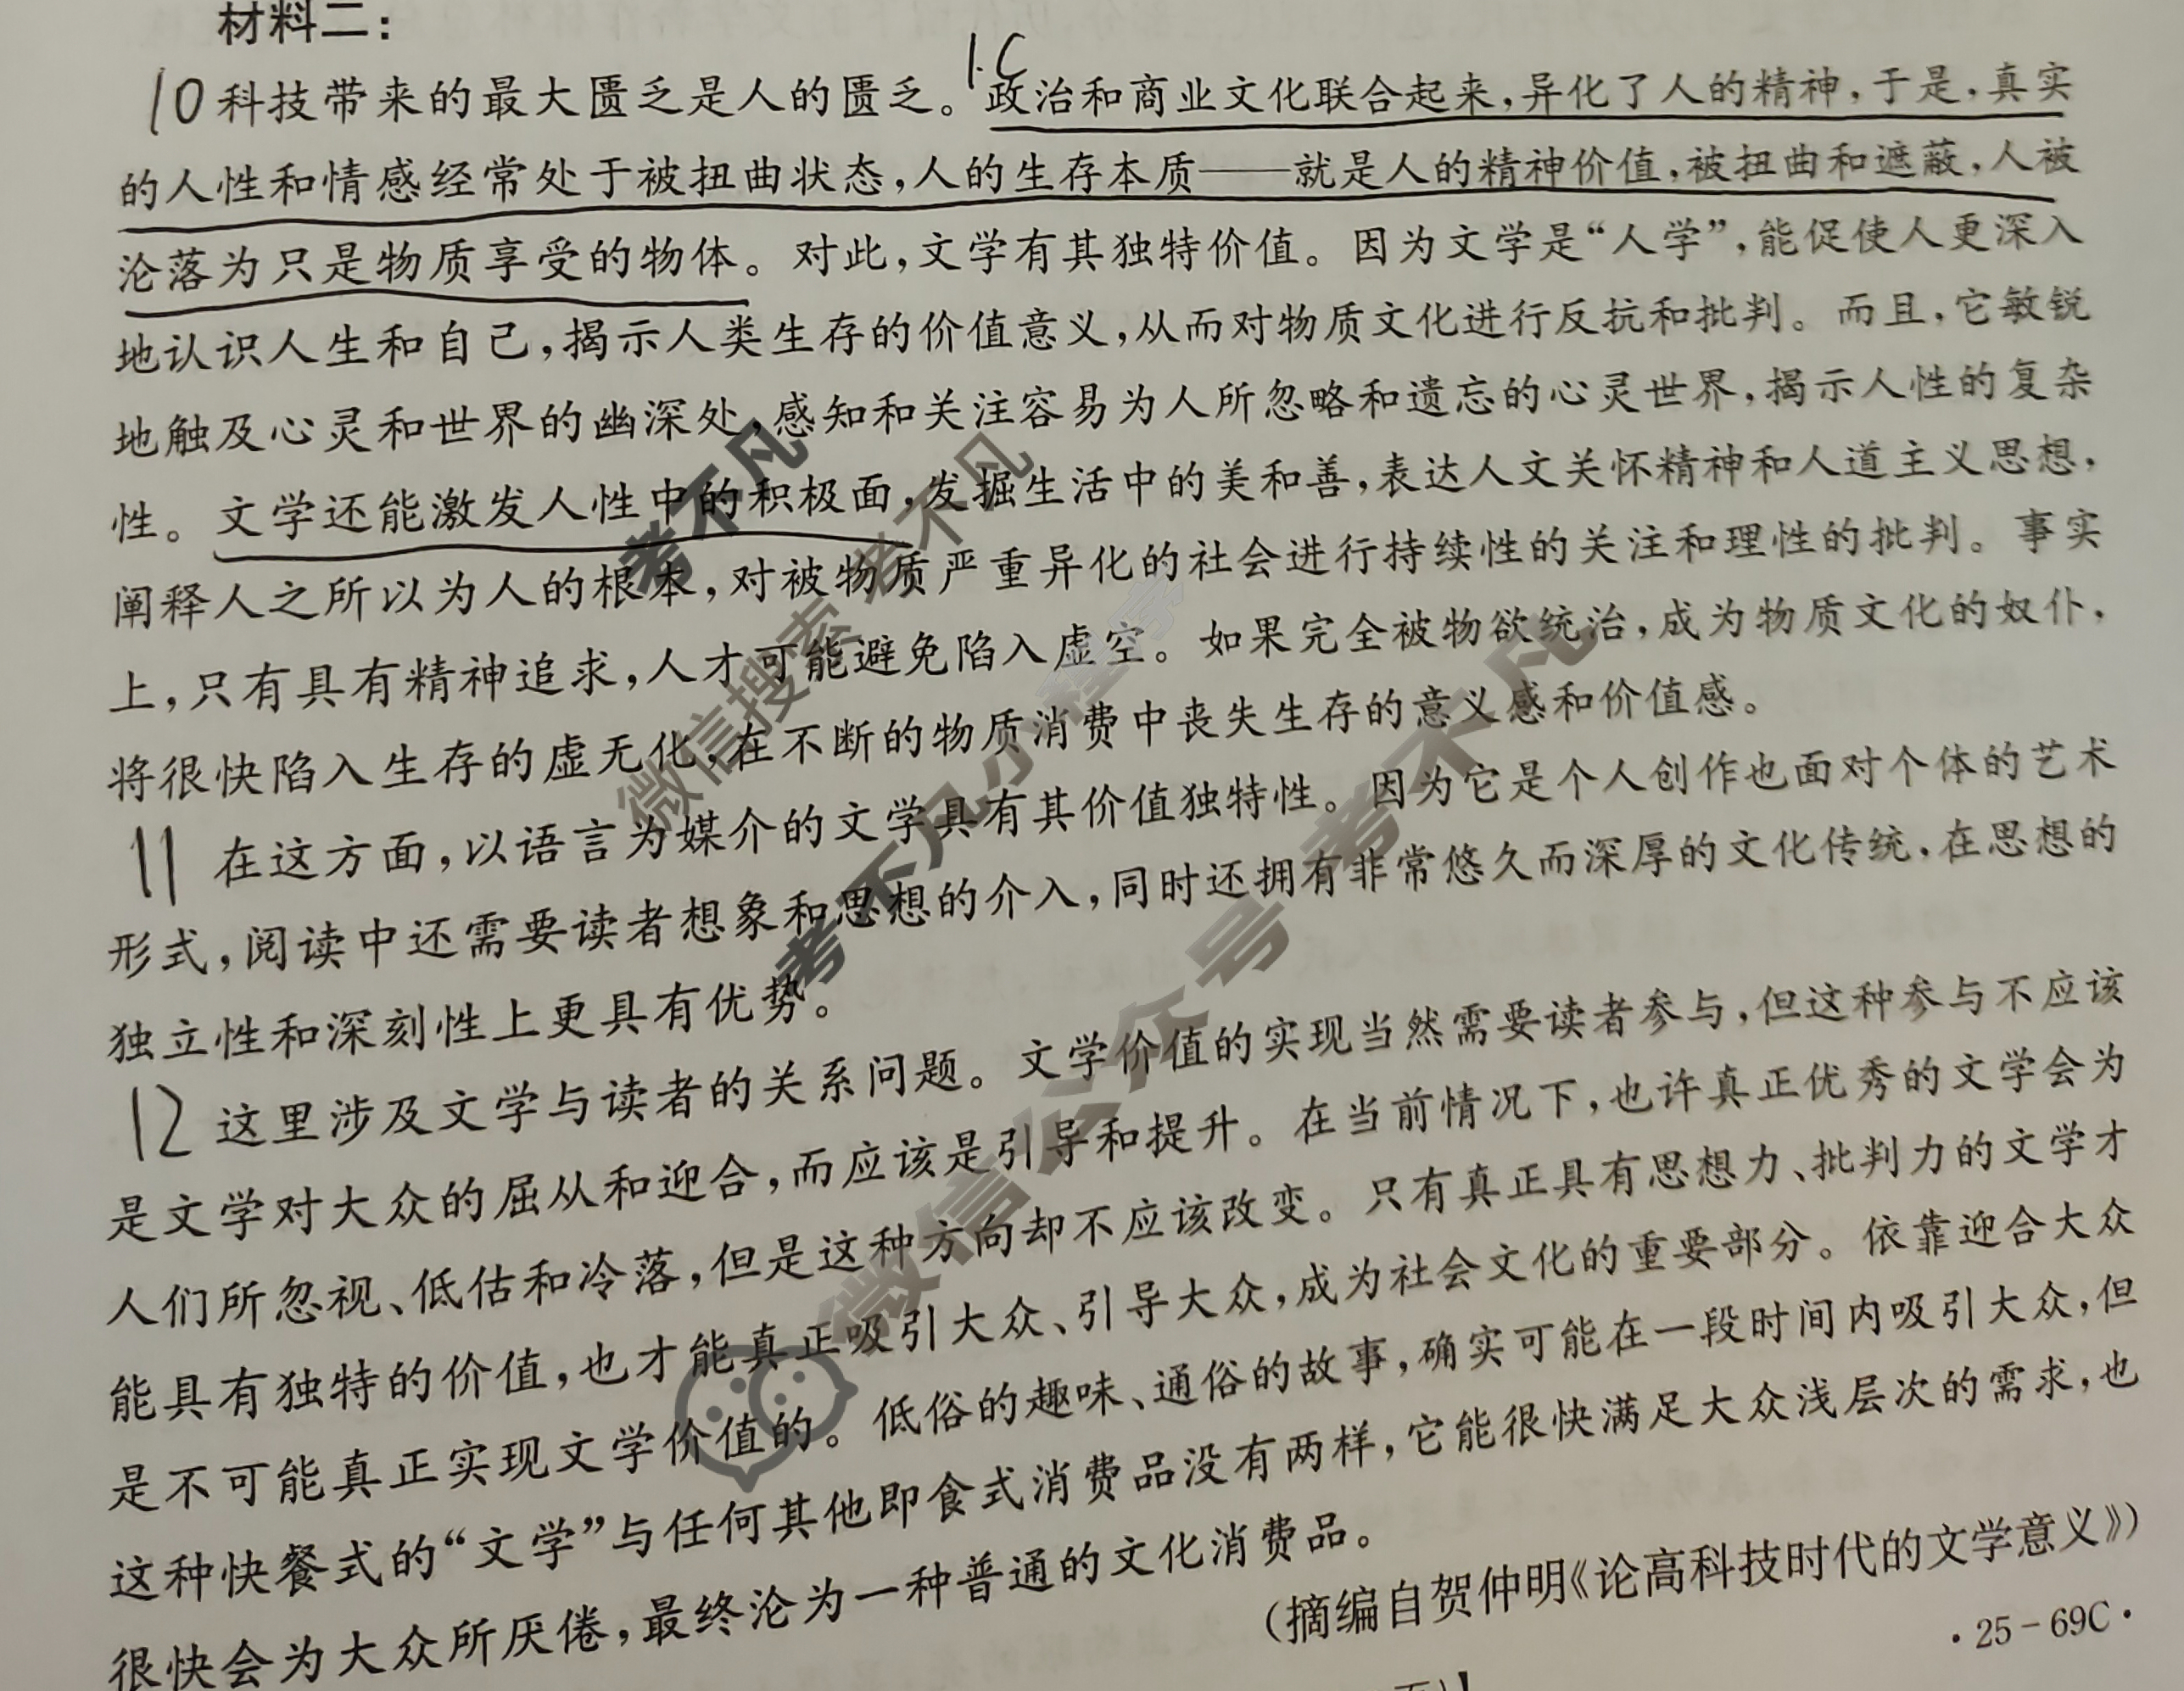 材料二：
1.C
10 科技带来的最大匮乏是人的匮乏。政治和商业文化联合起来，异化了人的精神，于是，真实
的人性和情感经常处于被扭曲状态，人的生存本质——就是人的精神价值，被扭曲和遮蔽，人被
沦落为只是物质享受的物体。对此，文学有其独特价值。因为文学是“人学”，能促使人更深入
地认识人生和自己，揭示人类生存的价值意义，从而对物质文化进行反抗和批判。而且，它敏锐
地触及心灵和世界的幽深处，感知和关注容易为人所忽略和遗忘的心灵世界，揭示人性的复杂
性。文学还能激发人性中的积极面，发掘生活中的美和善，表达人文关怀精神和人道主义思想，
阐释人之所以为人的根本，对被物质严重异化的社会进行持续性的关注和理性的批判。事实
上，只有具有精神追求，人才可能避免陷入虚空。如果完全被物欲统治，成为物质文化的奴仆，
将很快陷入生存的虚无化，在不断的物质消费中丧失生存的意义感和价值感。
11 在这方面，以语言为媒介的文学具有其价值独特性。因为它是个人创作也面对个体的艺术
形式，阅读中还需要读者想象和思想的介入，同时还拥有非常悠久而深厚的文化传统，在思想的
独立性和深刻性上更具有优势。
12 这里涉及文学与读者的关系问题。文学价值的实现当然需要读者参与，但这种参与不应该
是文学对大众的屈从和迎合，而应该是引导和提升。在当前情况下，也许真正优秀的文学会为
人们所忽视、低估和冷落，但是这种方向却不应该改变。只有真正具有思想力、批判力的文学才
能具有独特的价值，也才能真正吸引大众、引导大众，成为社会文化的重要部分。依靠迎合大众
是不可能真正实现文学价值的。低俗的趣味、通俗的故事，确实可能在一段时间内吸引大众，但
这种快餐式的“文学”与任何其他即食式消费品没有两样，它能很快满足大众浅层次的需求，也
很快会为大众所厌倦，最终沦为一种普通的文化消费品。
（摘编自贺仲明《论高科技时代的文学意义》）
·25-69C·
考不凡
微信搜索 考不凡
考不凡小程序
微信公众号 考不凡